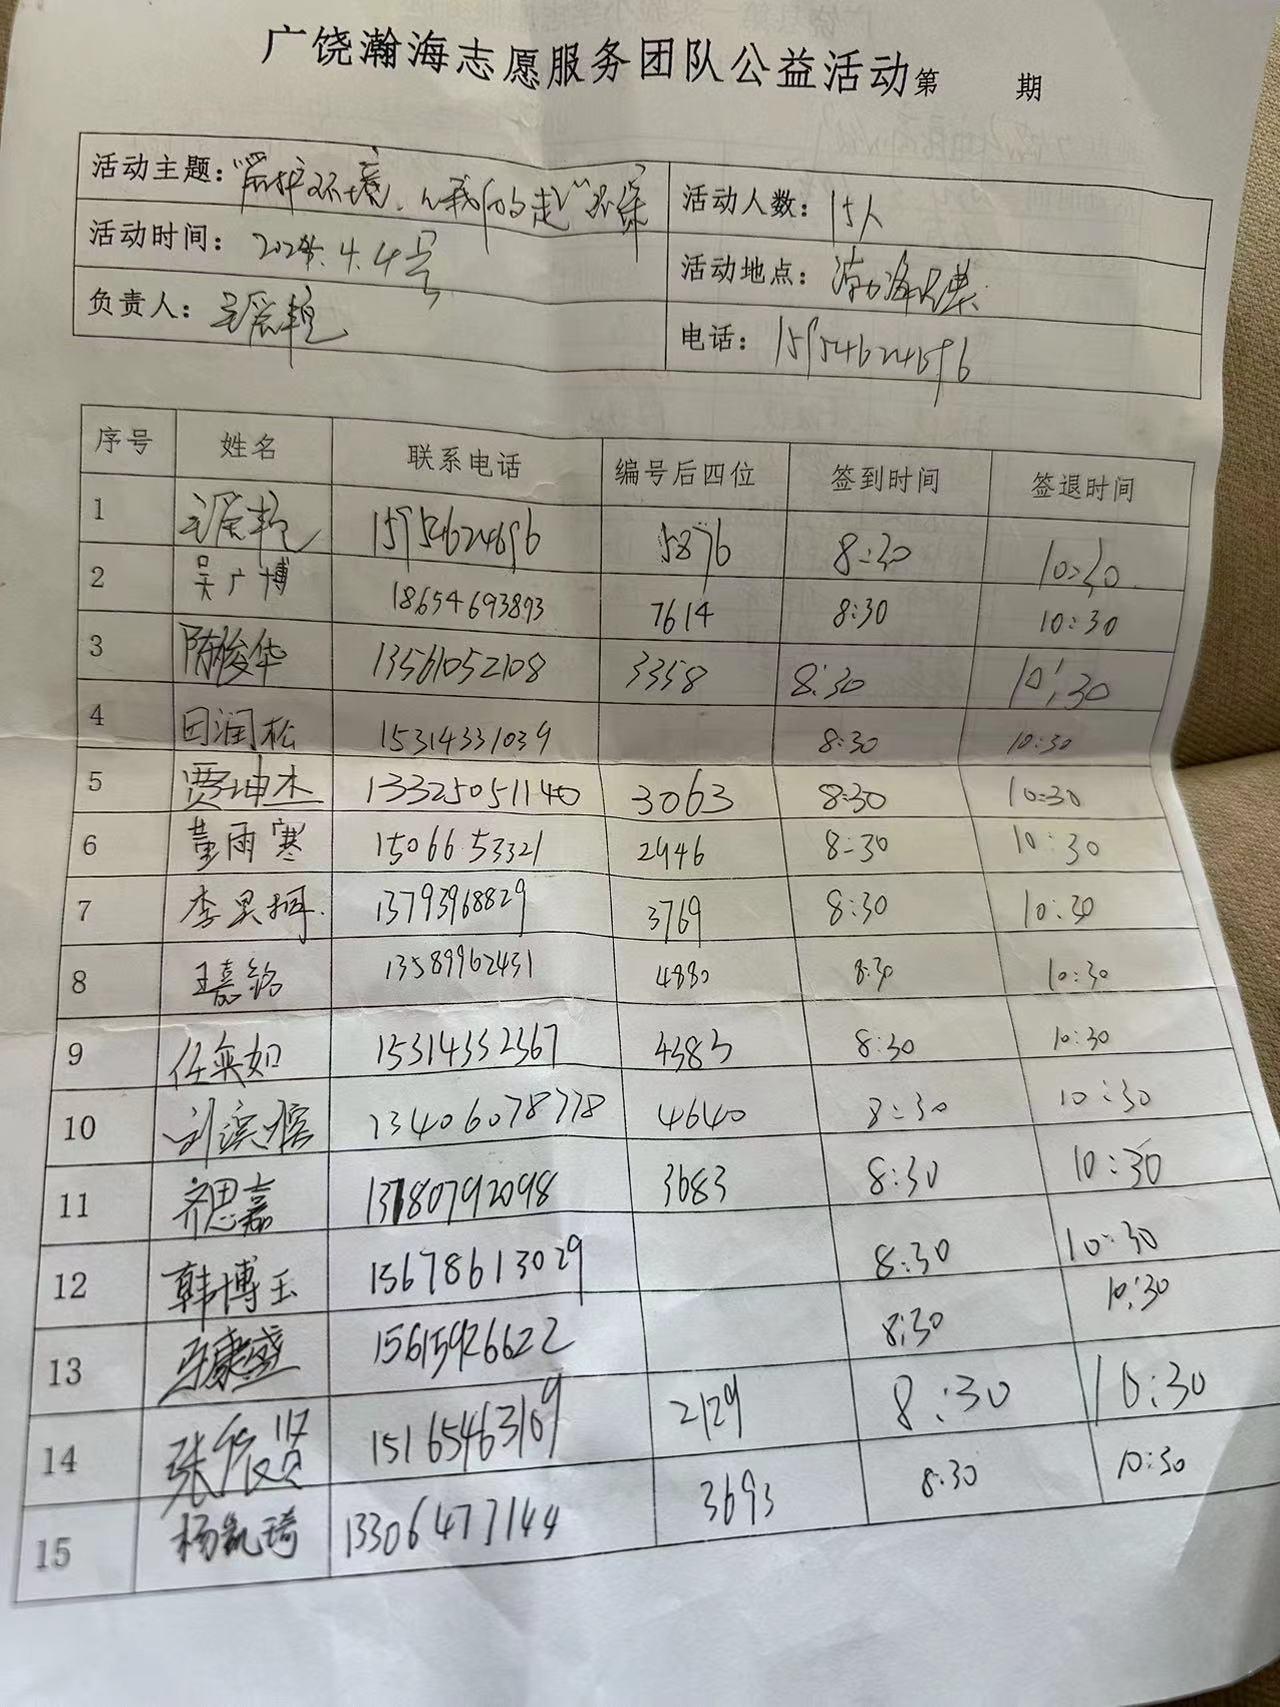 广饶瀚海志愿服务团队公益活动第 期
活动主题：“爱护环境，从我们的走”环保 活动人数：15人
活动时间：2024.4.4号 活动地点：
负责人： 电话：15954624696
序号 姓名 联系电话 编号后四位 签到时间 签退时间
1 15954624696 5876 8:30 10:30
2 吴广博 18654693893 7614 8:30 10:30
3 陈俊华 13561052108 3358 8:30 10:30
4 田润松 15314331039 8:30 10:30
5 贾坤杰 13325051140 3063 8:30 10:30
6 董雨寒 1506653321 2946 8:30 10:30
7 李昊珂 13793968829 3769 8:30 10:30
8 王嘉铭 13589962431 4880 8:30 10:30
9 任奕如 15314332367 4383 8:30 10:30
10 刘滨 13406078778 4640 8:30 10:30
11 齐思嘉 13780792098 3683 8:30 10:30
12 韩博玉 15678613029 8:30 10:30
13 康盛 15615926622 8:30 10:30
14 张宸贤 15165463169 2129 8:30 10:30
15 杨凯琦 13306477144 3693 8:30 10:30